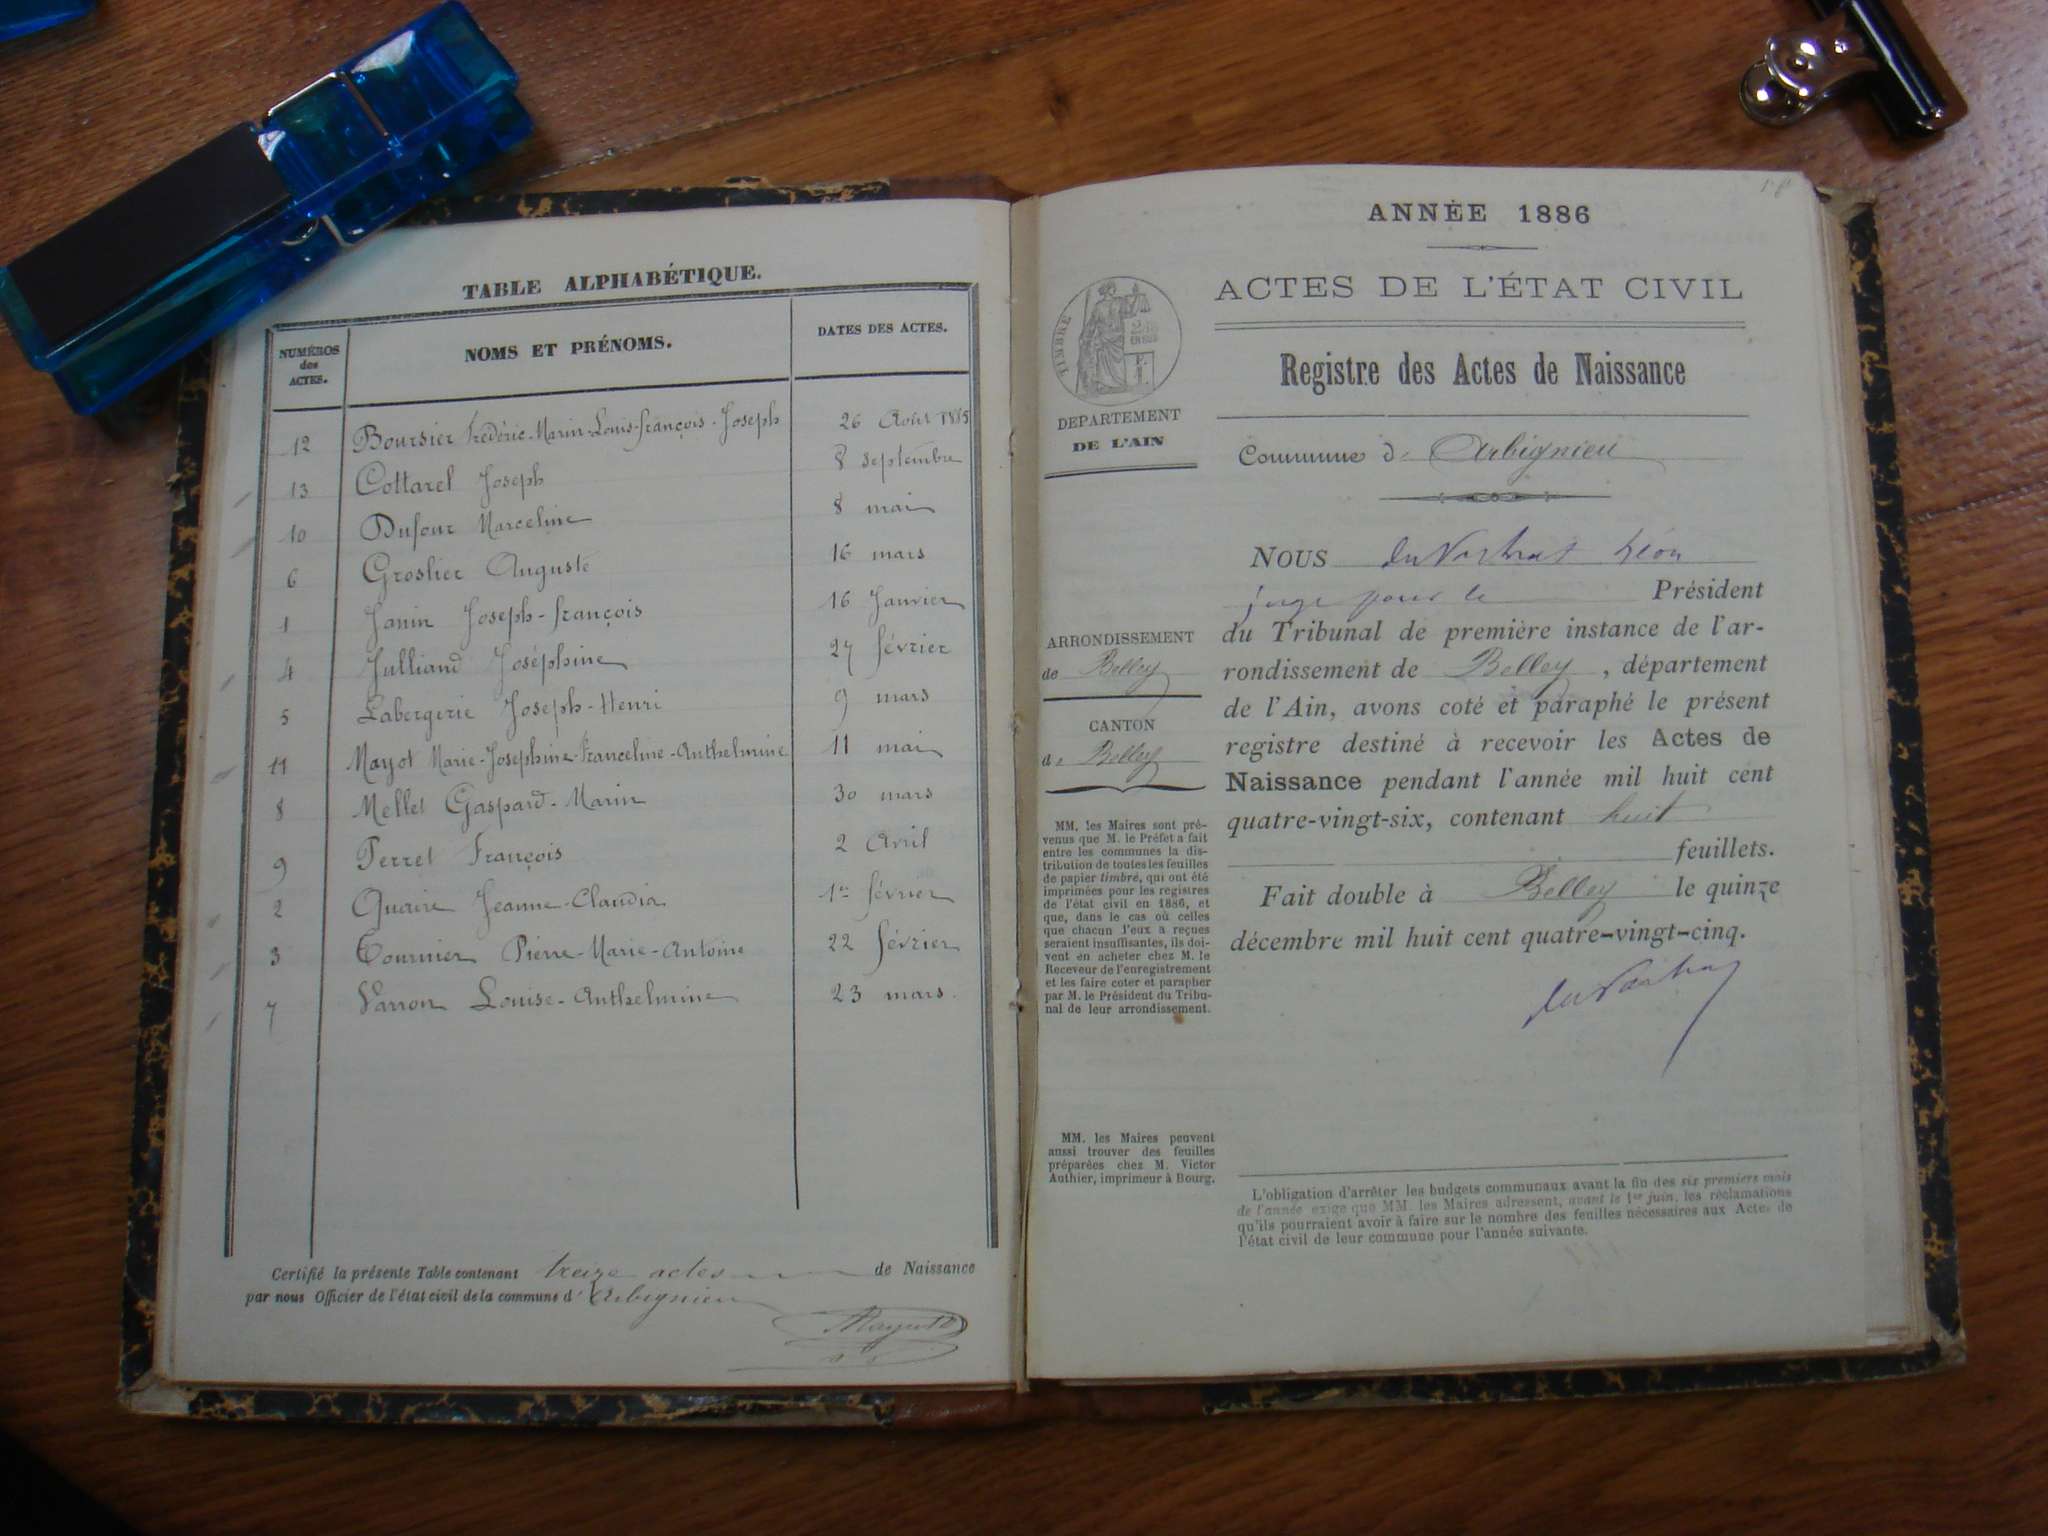 TABLE ALPHABÉTIQUE.
NUMÉROS des ACTES.
NOMS ET PRÉNOMS.
DATES DES ACTES.
12 Boursier Frédéric-Marin-Louis-François-Joseph 26 Août 1885
13 Cottarel Joseph 8 septembre
10 Dufour Marceline 8 mai
6 Groslier Auguste 16 mars
1 Janin Joseph-François 16 Janvier
4 Julliand Joséphine 27 février
5 Labergerie Joseph-Henri 9 mars
11 Mayot Marie-Josephine-Franceline-Anthelmine 11 mai
8 Mellet Gaspard-Marin 30 mars
9 Perret François 2 Avril
2 Quaire Jeanne-Claudia 1er février
3 Tournier Pierre-Marie-Antoine 22 février
7 Varron Louise-Anthelmine 23 mars.
Certifié la présente Table contenant treize actes de Naissance
par nous Officier de l'état civil de la commune d'Arbignieu
ANNÉE 1886
ACTES DE L'ÉTAT CIVIL
Registre des Actes de Naissance
TIMBRE
DEPARTEMENT
DE L'AIN
Commune d'Arbignieu
NOUS Léon
juge pour le Président
du Tribunal de première instance de l'ar-
rondissement de Belley, département
de l'Ain, avons coté et paraphé le présent
registre destiné à recevoir les Actes de
Naissance pendant l'année mil huit cent
quatre-vingt-six, contenant huit
feuillets.
Fait double à Belley le quinze
décembre mil huit cent quatre-vingt-cinq.
ARRONDISSEMENT
de Belley
CANTON
de Belley
MM. les Maires sont pré-
venus que M. le Préfet a fait
entre les communes la dis-
tribution de toutes les feuilles
de papier timbré, qui ont été
imprimées pour les registres
de l'état civil en 1886, et
que, dans le cas où celles
que chacun d'eux a reçues
seraient insuffisantes, ils doi-
vent en acheter chez M. le
Receveur de l'enregistrement
et les faire coter et parapher
par M. le Président du Tribu-
nal de leur arrondissement.
MM. les Maires peuvent
aussi trouver des feuilles
préparées chez M. Victor
Authier, imprimeur à Bourg.
L'obligation d'arrêter les budgets communaux avant la fin des six premiers mois
de l'année exige que MM. les Maires adressent, avant le 1er juin, les réclamations
qu'ils pourraient avoir à faire sur le nombre des feuilles nécessaires aux Actes de
l'état civil de leur commune pour l'année suivante.